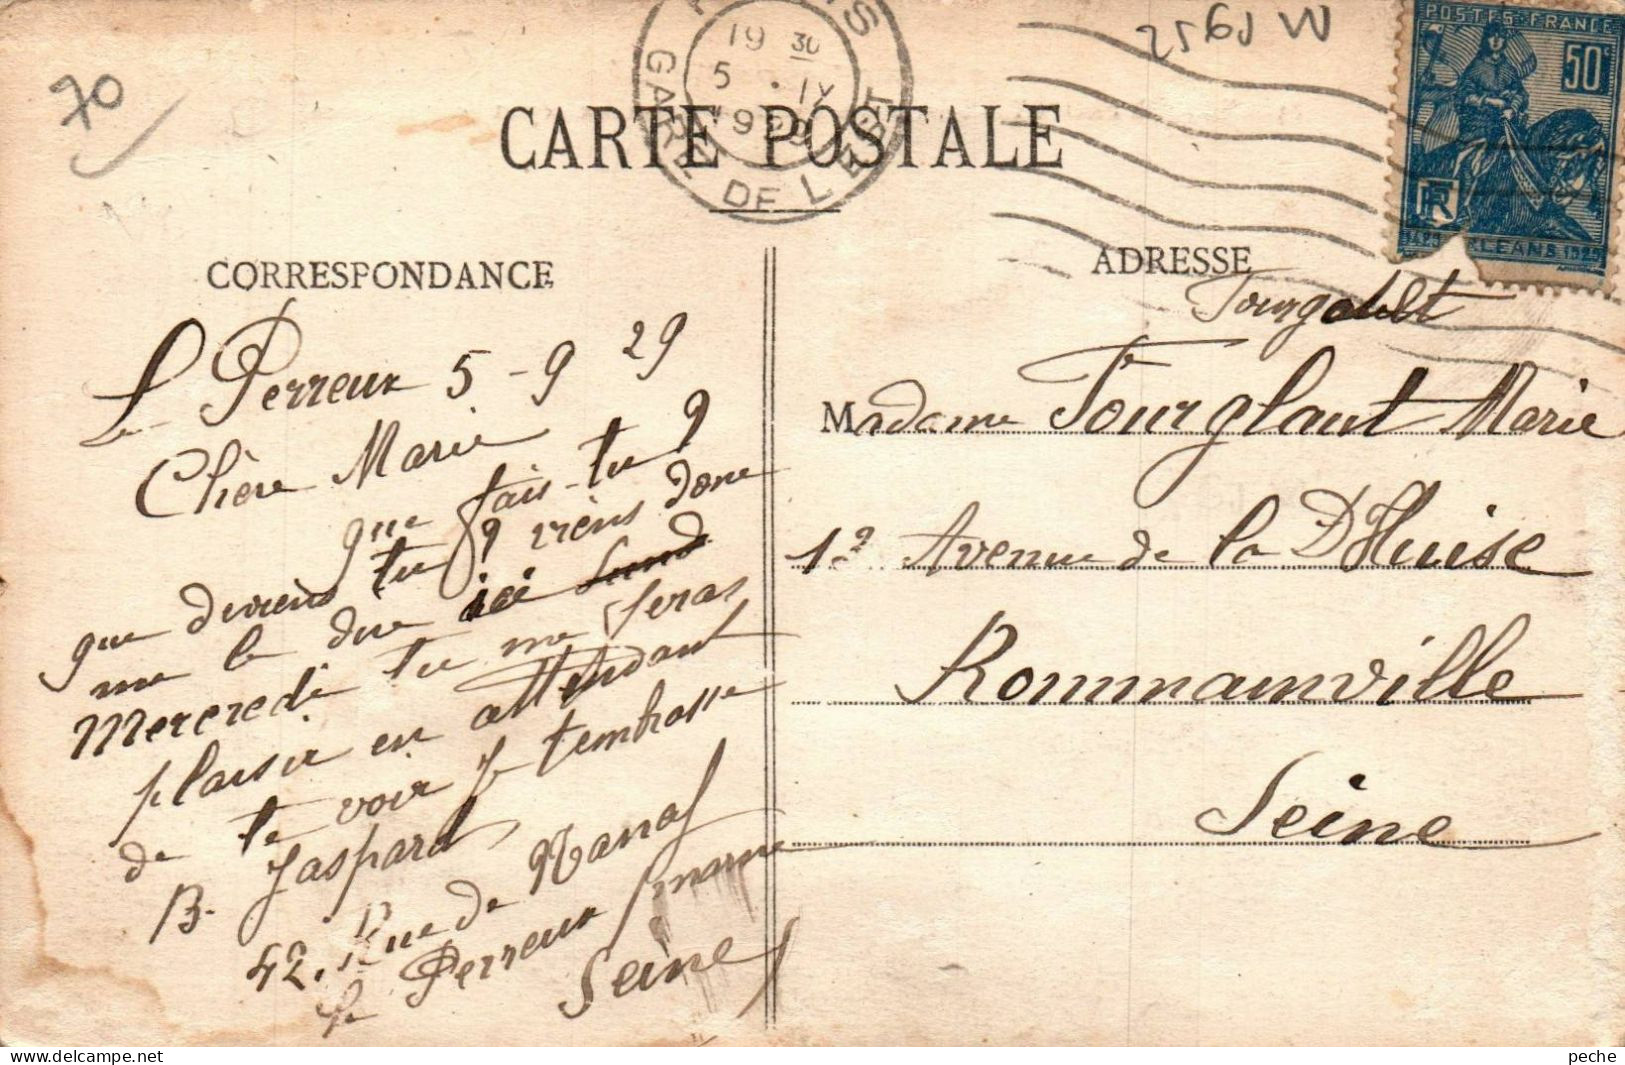 70
2560 W
PARIS
19 30
5 · IX
1929
GARE DE L'EST
POSTES · FRANCE
50c
RF
1429 ORLEANS 1929
CARTE POSTALE
CORRESPONDANCE
Le Perreux 5 - 9 29
Chère Marie
que fais-tu ?
que deviens tu ? viens donc
me le dire ici Lund
Mercredi tu me feras
plaisir en attendant
de te voir Je t'embrasse
B. Gaspard
42, Rue de Nanas
Le Perreux s/marne
Seine
ADRESSE
Tourgault
Madame Tourglant Marie
12 Avenue de la D'Huise
Rommainville
Seine
peche